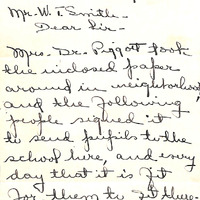 Mr. W. T. Smith-
Dear Sir-
Mrs. Dr. Piggott took
the inclosed paper
around in neighborhood,
and the following
people signed it
to send pupils to the
school here, and every
day that it is fit
for them to get there-